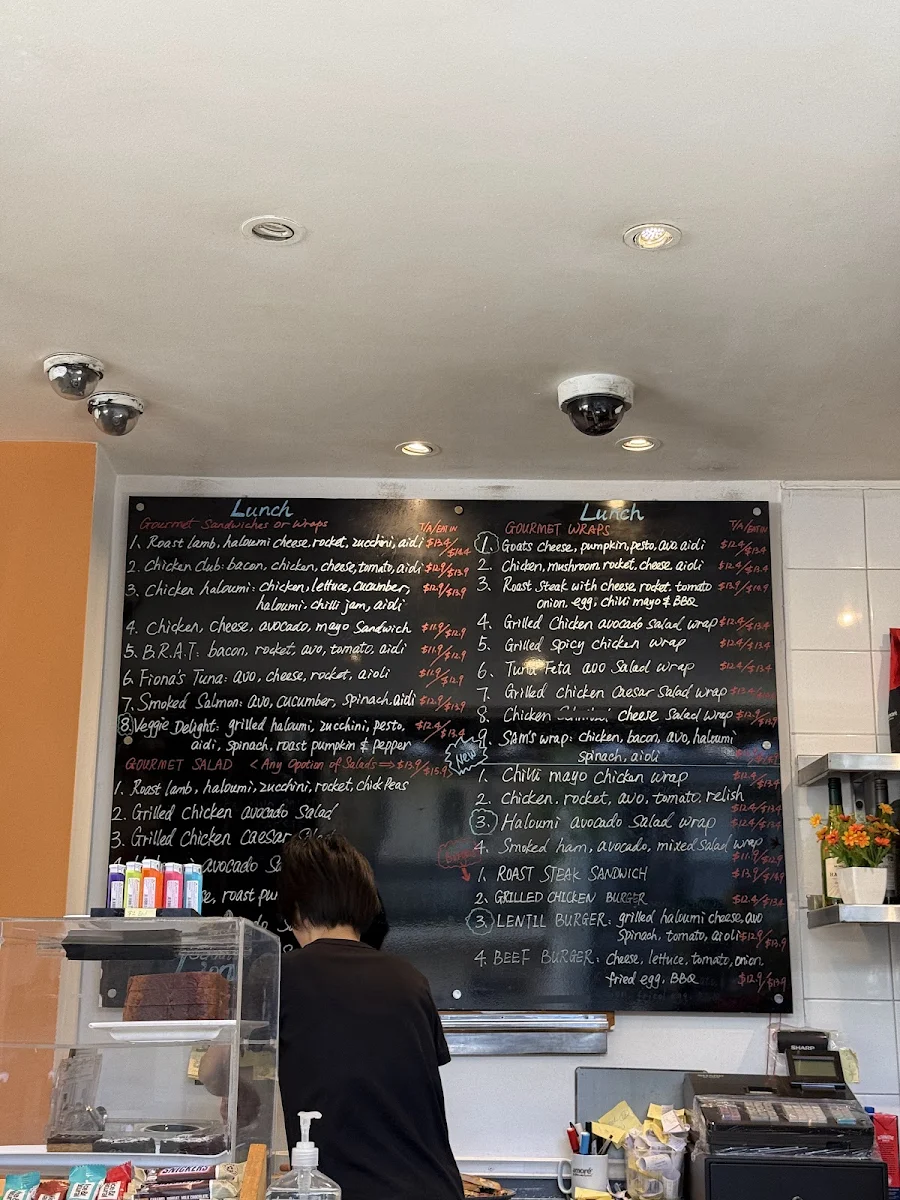 Lunch
Gourmet Sandwiches or Wraps T/A/EAT IN
1. Roast lamb, haloumi cheese, rocket, zucchini, aidi $13.4/$14.4
2. Chicken club: bacon, chicken, cheese, tomato, aidi $12.9/$13.9
3. Chicken haloumi: chicken, lettuce, cucumber, $12.9/$13.9
haloumi. chilli jam, aioli
4. Chicken, cheese, avocado, mayo Sandwich $11.9/$12.9
5. B.R.A.T: bacon, rocket, avo, tomato, aidi $11.9/$12.9
6. Fiona's Tuna: avo, cheese, rocket, aioli $11.9/$12.9
7. Smoked Salmon: avo, cucumber, spinach, aidi $12.9/$13.9
8. Veggie Delight: grilled haloumi, zucchini, pesto, $12.4/$13.4
aidi, spinach, roast pumpkin & pepper
GOURMET SALAD < Any Option of Salads => $13.9/$15.9
1. Roast lamb, haloumi, zucchini, rocket, chick Peas
2. Grilled Chicken avocado Salad
3. Grilled Chicken Caesar
avocado
roast
Lunch
GOURMET WRAPS T/A/EAT IN
1. Goats cheese, pumpkin, pesto, avo, aidi $12.4/$13.4
2. Chicken, mushroom rocket, cheese aidi $12.4/$13.4
3. Roast Steak with cheese, rocket, tomato $13.9/$14.9
onion, egg, chilli mayo & BBQ
4. Grilled Chicken avocado salad wrap $12.4/$13.4
5. Grilled spicy chicken wrap $12.4/$13.4
6. Tuna Feta avo Salad wrap $12.4/$13.4
7. Grilled Chicken Caesar Salad wrap
8. Chicken cheese Salad wrap $12.9/$13.9
9. SAM'S wrap: chicken, bacon, avo, haloumi
spinach, aioli
New
1. Chilli mayo chicken wrap $12.4/$13.4
2. Chicken, rocket, avo, tomato, relish $12.4/$13.4
3. Haloumi avocado Salad wrap $12.4/$13.4
4. Smoked ham, avocado, mixed Salad wrap $11.9/$12.9
1. ROAST STEAK SANDWICH $13.9/$14.9
2. GRILLED CHICKEN BURGER $12.4/$13.4
3. LENTIL BURGER: grilled haloumi cheese, avo
Spinach, tomato, aioli $12.9/$13.9
4. BEEF BURGER: cheese, lettuce, tomato, onion,
fried egg, BBQ $12.9/$13.9
SHARP
SNICKERS